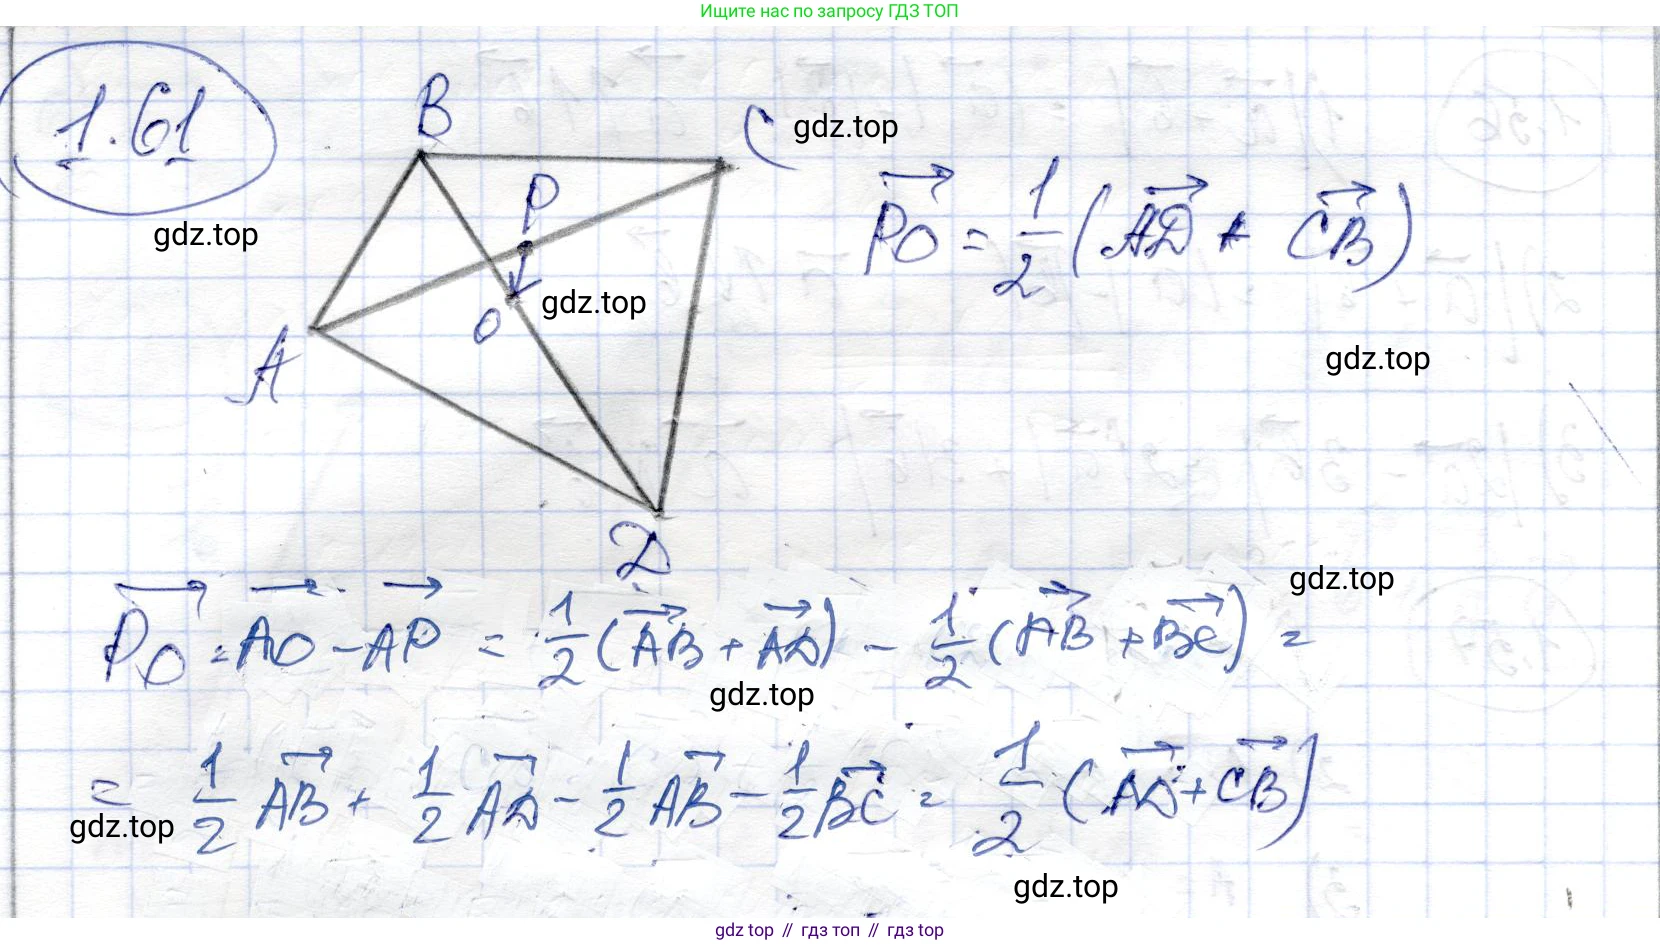 Ищите нас по запросу ГДЗ ТОП
1.61
B
C
gdz.top
P
gdz.top
PO = 1/2 (AD + CB)
O
gdz.top
A
gdz.top
D
gdz.top
PO = AO - AP = 1/2 (AB + AD) - 1/2 (AB + BC) =
gdz.top
= 1/2 AB + 1/2 AD - 1/2 AB - 1/2 BC = 1/2 (AD + CB)
gdz.top
gdz.top
gdz top // гдз топ // гдз top